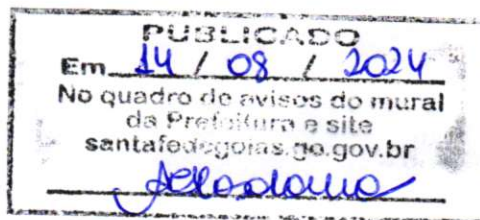 PUBLICADO
Em 14 / 08 / 2024
No quadro de avisos do mural
da Prefeitura e site
santafedegoias.go.gov.br